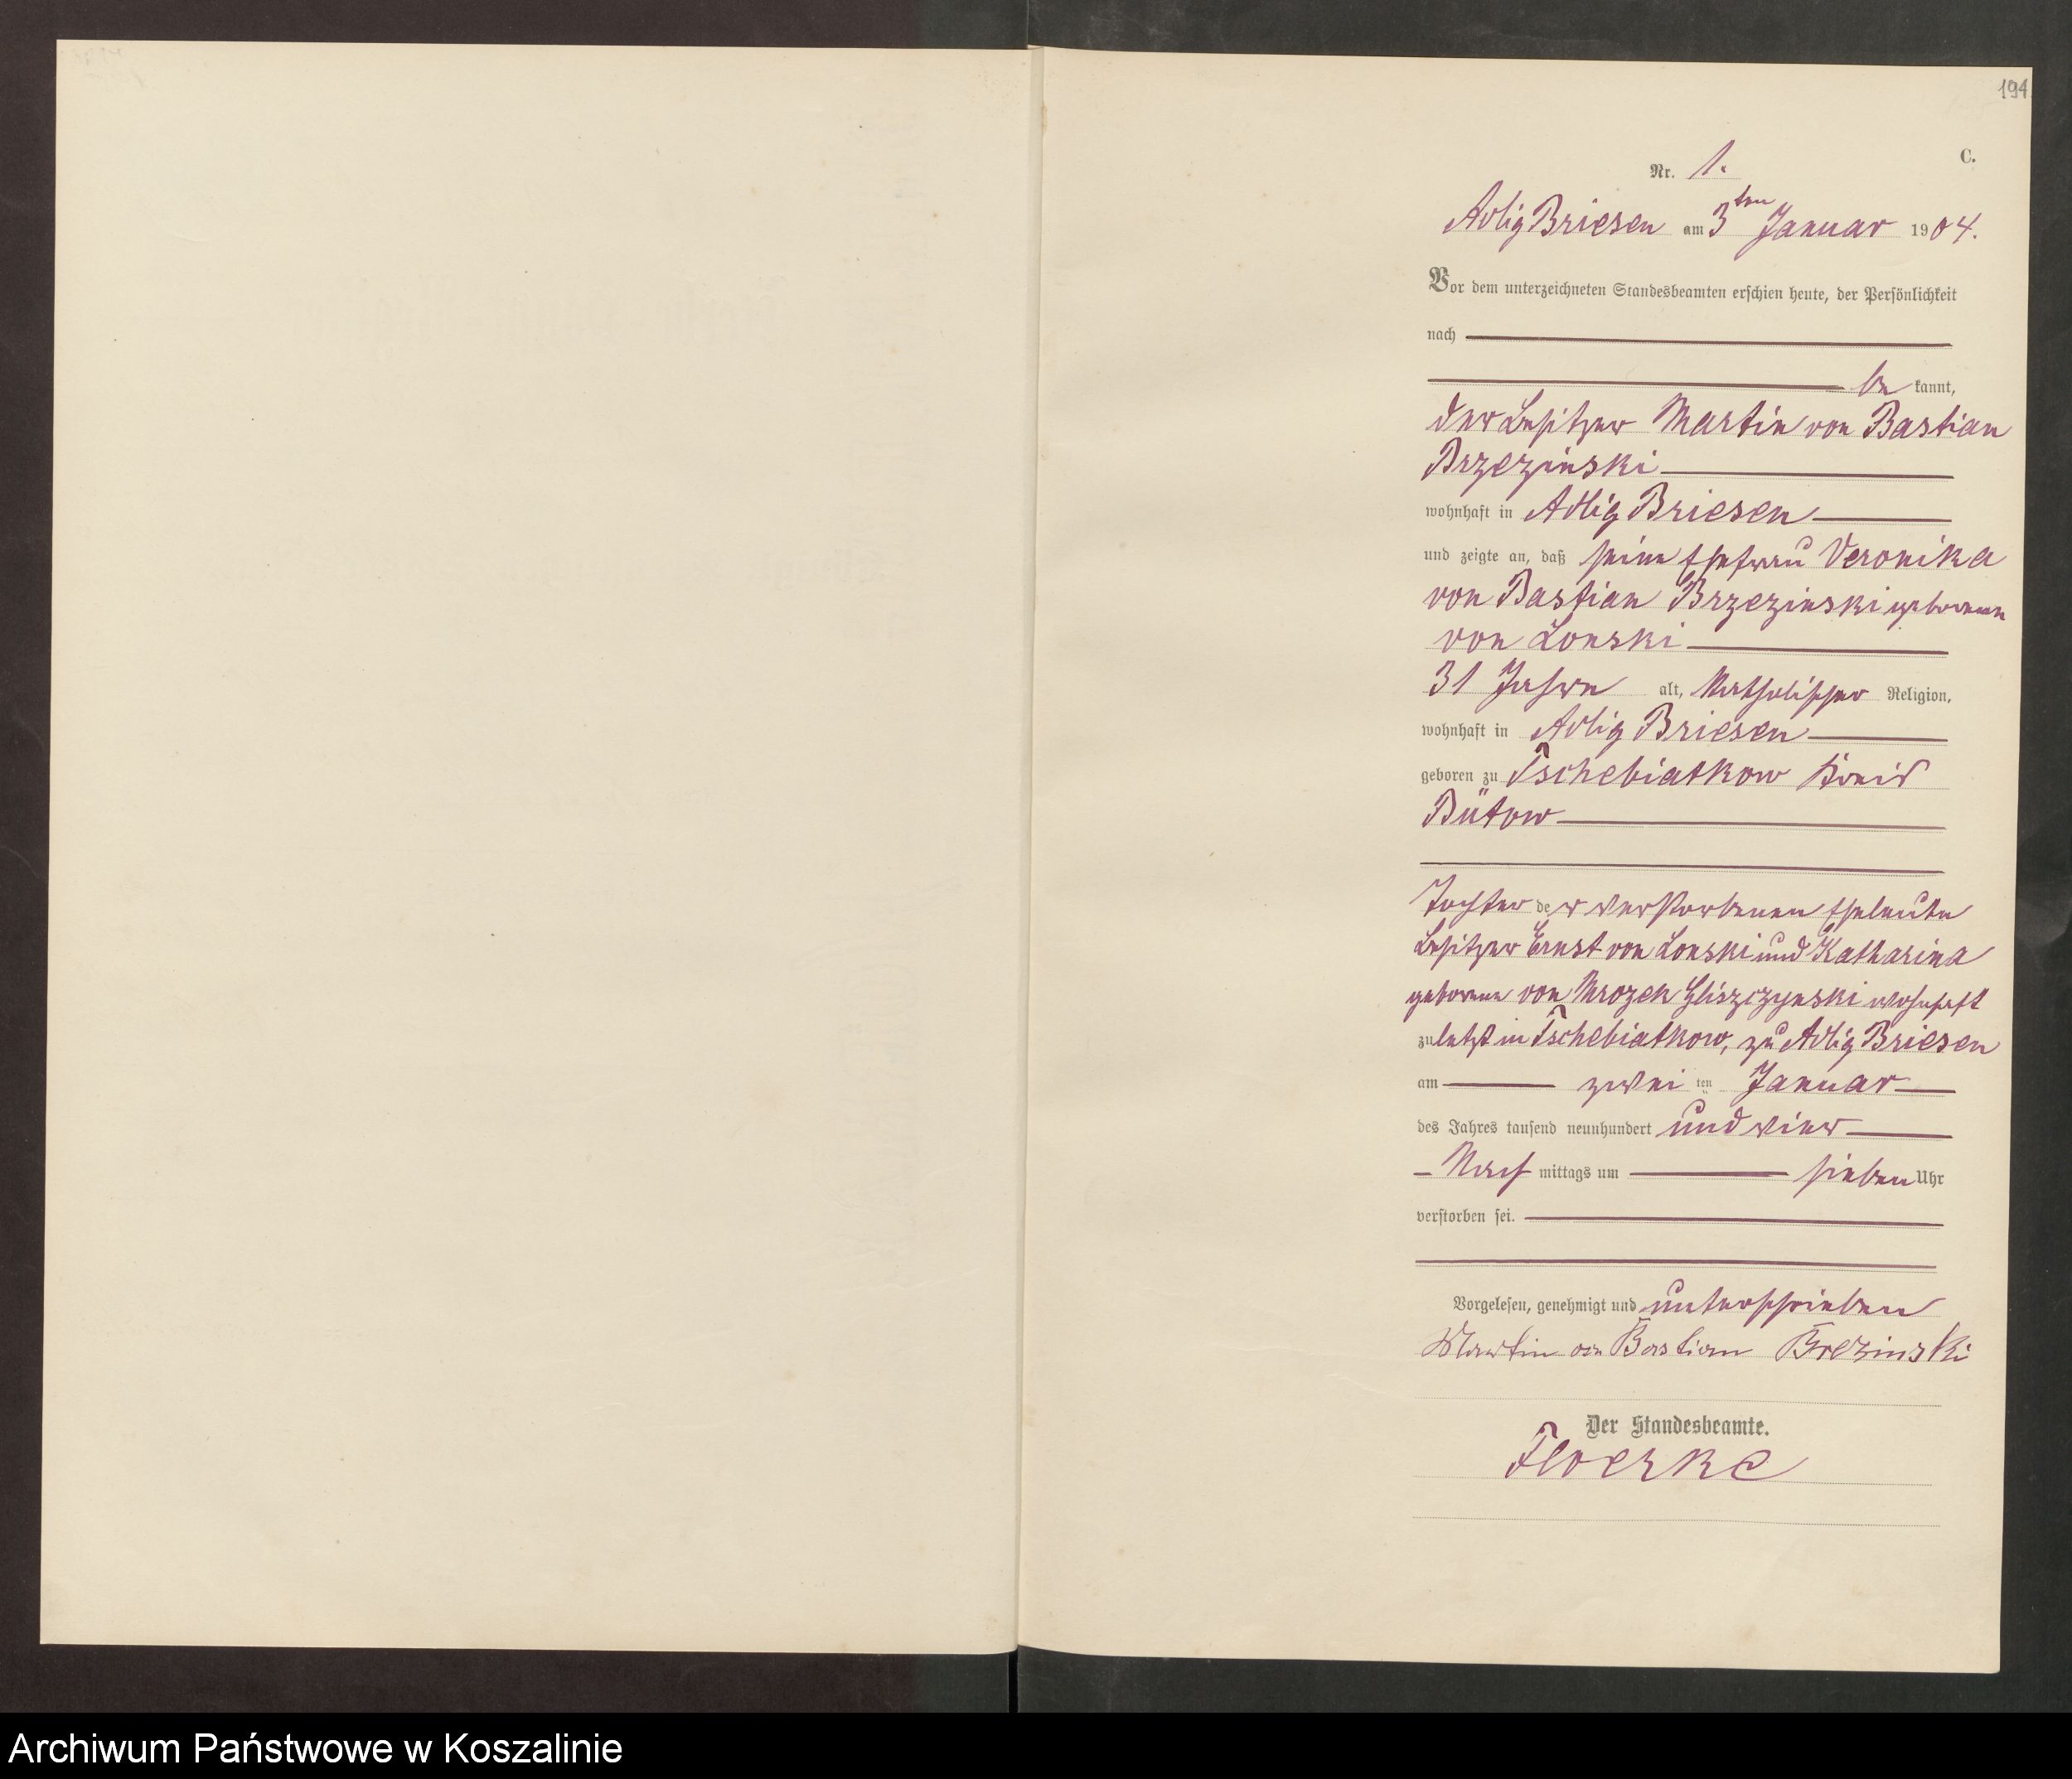 194
C.
Nr. 1.
Adlig Briesen am 3ten Januar 1904.
Vor dem unterzeichneten Standesbeamten erschien heute, der Persönlichkeit
nach
be kannt,
der Besitzer Martin von Bastian
Brzezinski
wohnhaft in Adlig Briesen
und zeigte an, daß seine Ehefrau Veronika
von Bastian Brzezinski geborene
von Lonski
31 Jahre alt, katholischer Religion,
wohnhaft in Adlig Briesen
geboren zu Tschebiatkow Kreis
Bütow
Tochter der verstorbenen Eheleute
Besitzer Ernst von Lonski und Katharina
geborene von Mrozek Gliszczynski wohnhaft
zuletzt in Tschebiatkow, zu Adlig Briesen
am zwei ten Januar
des Jahres tausend neunhundert und vier
Nach mittags um sieben Uhr
verstorben sei.
Vorgelesen, genehmigt und unterschrieben
Martin von Bastian Brezinski
Der Standesbeamte.
Floerke
Archiwum Państwowe w Koszalinie